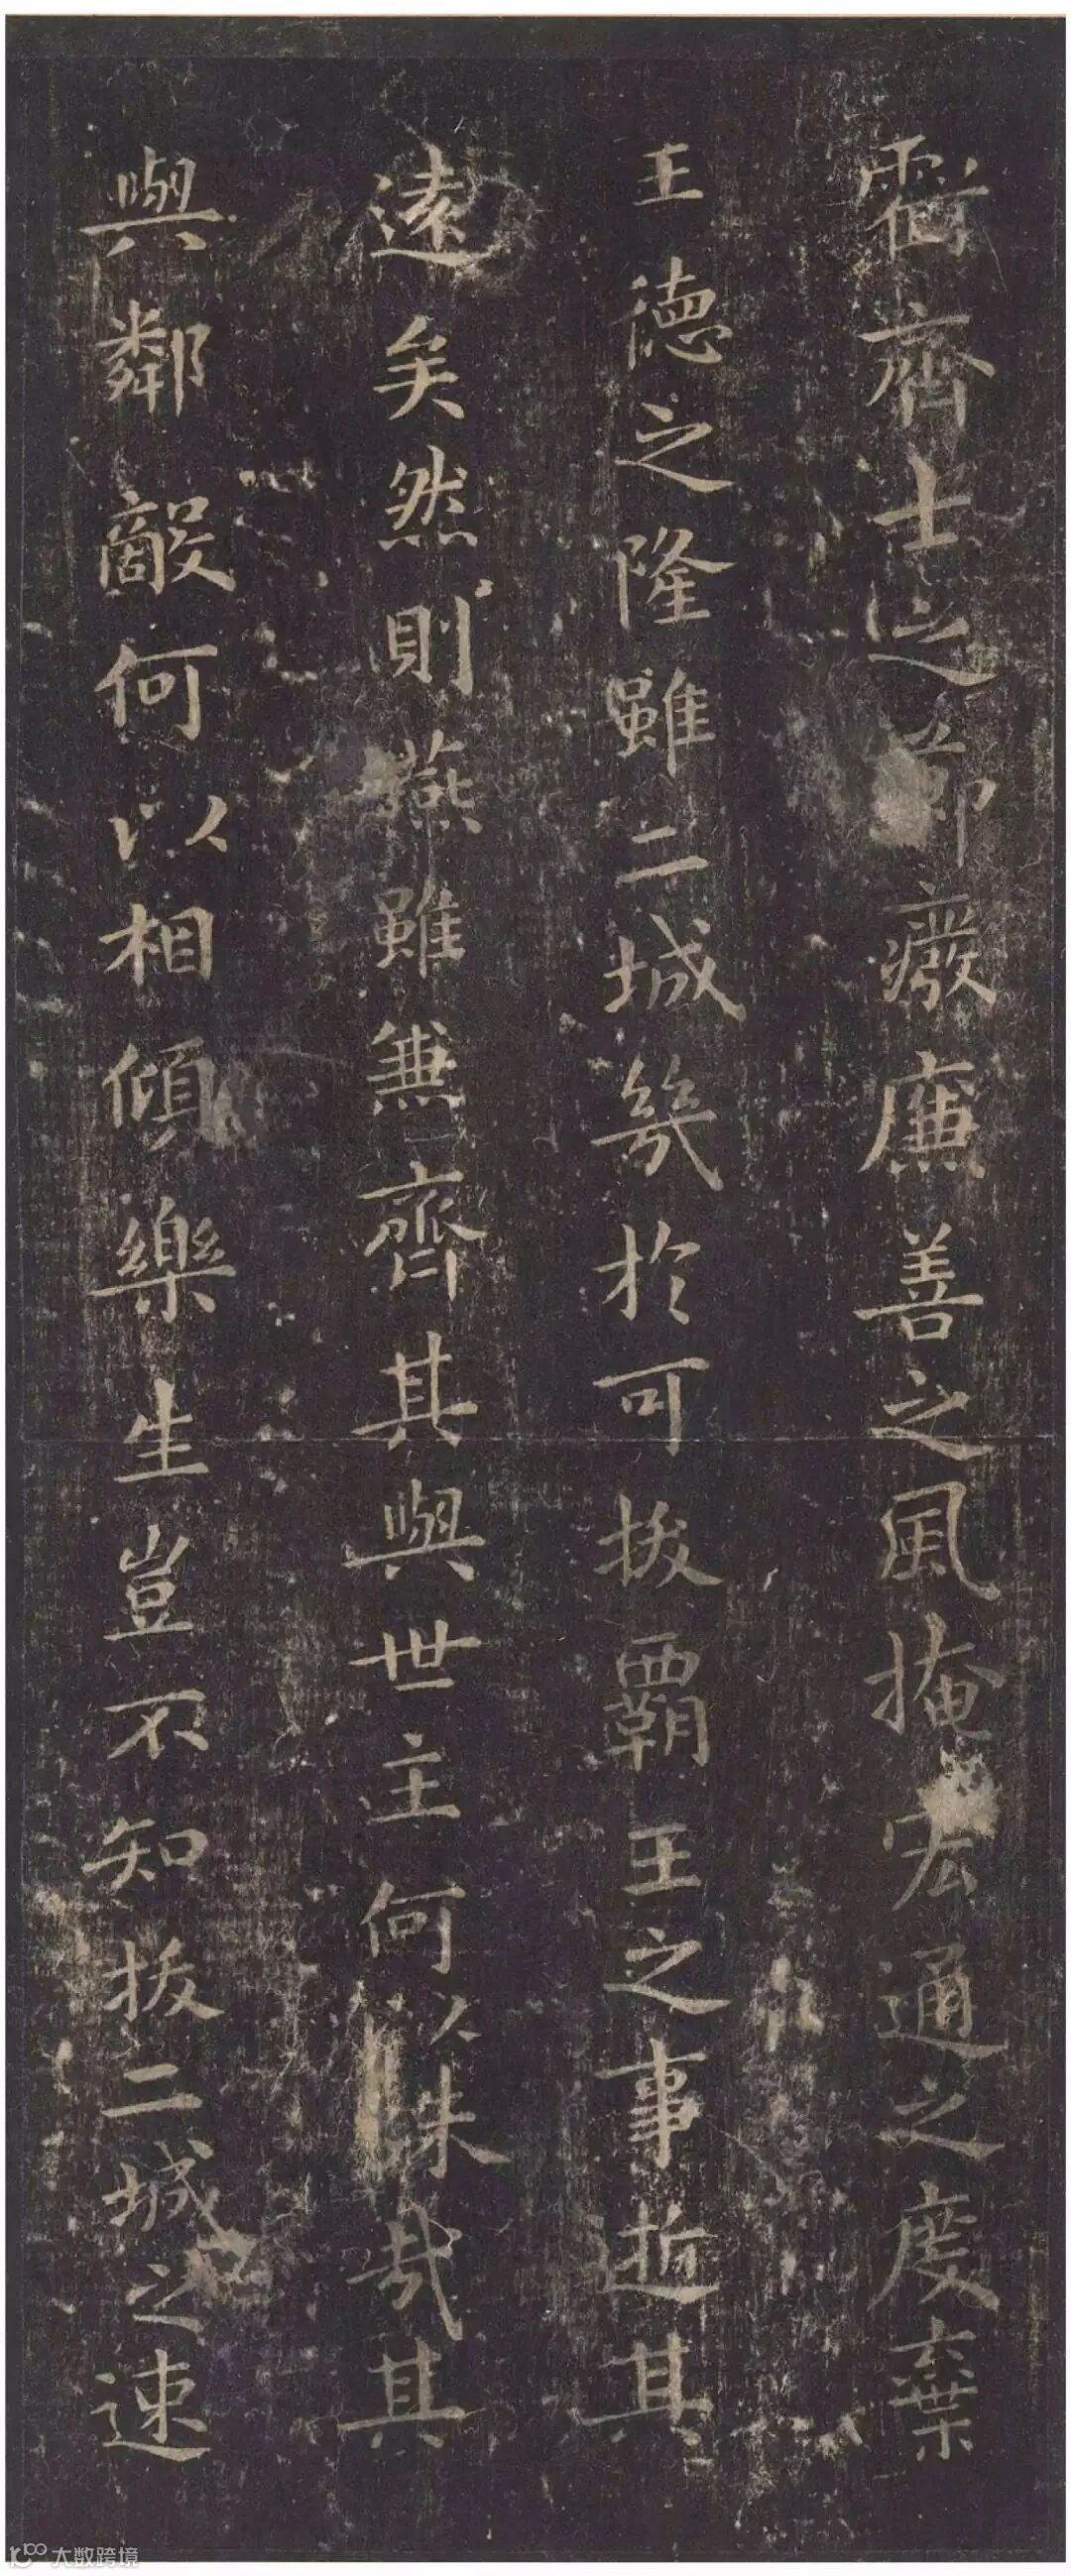 虧齊士之節廢廉善之風掩宏通之度棄
王德之隆雖二城幾於可拔覇王之事逝其
遠矣然則燕雖兼齊其與世主何以殊哉其
與鄰敵何以相傾樂生豈不知拔二城之速
大数跨境